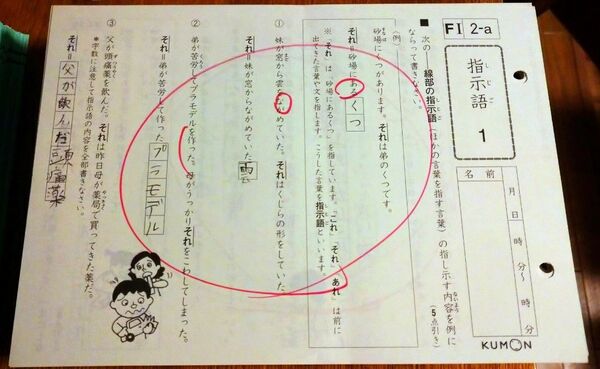 FⅠ 2-a
指示語 1
名前
月 日
時 分〜 時 分
KUMON
■ 次の――線部の指示語(ほかの言葉を指す言葉)の指し示す内容を例に
ならって書きなさい。
(5点引き)
(例)
砂場にくつがあります。それは弟のくつです。
それ=砂場にあるくつ
※「それ」は、「砂場にあるくつ」を指しています。「これ」「それ」「あれ」は前に
出てきた言葉や文を指します。こうした言葉を指示語といいます。
① 妹が窓から雲をながめていた。それはくじらの形をしていた。
それ=妹が窓からながめていた雲
② 弟が苦労してプラモデルを作った。母がうっかりそれをこわしてしまった。
それ=弟が苦労して作ったプラモデル
③ 父が頭痛薬を飲んだ。それは昨日母が薬局で買ってきた薬だ。
*字数に注意して指示語の内容を全部書きなさい。
それ=父が飲んだ頭痛薬